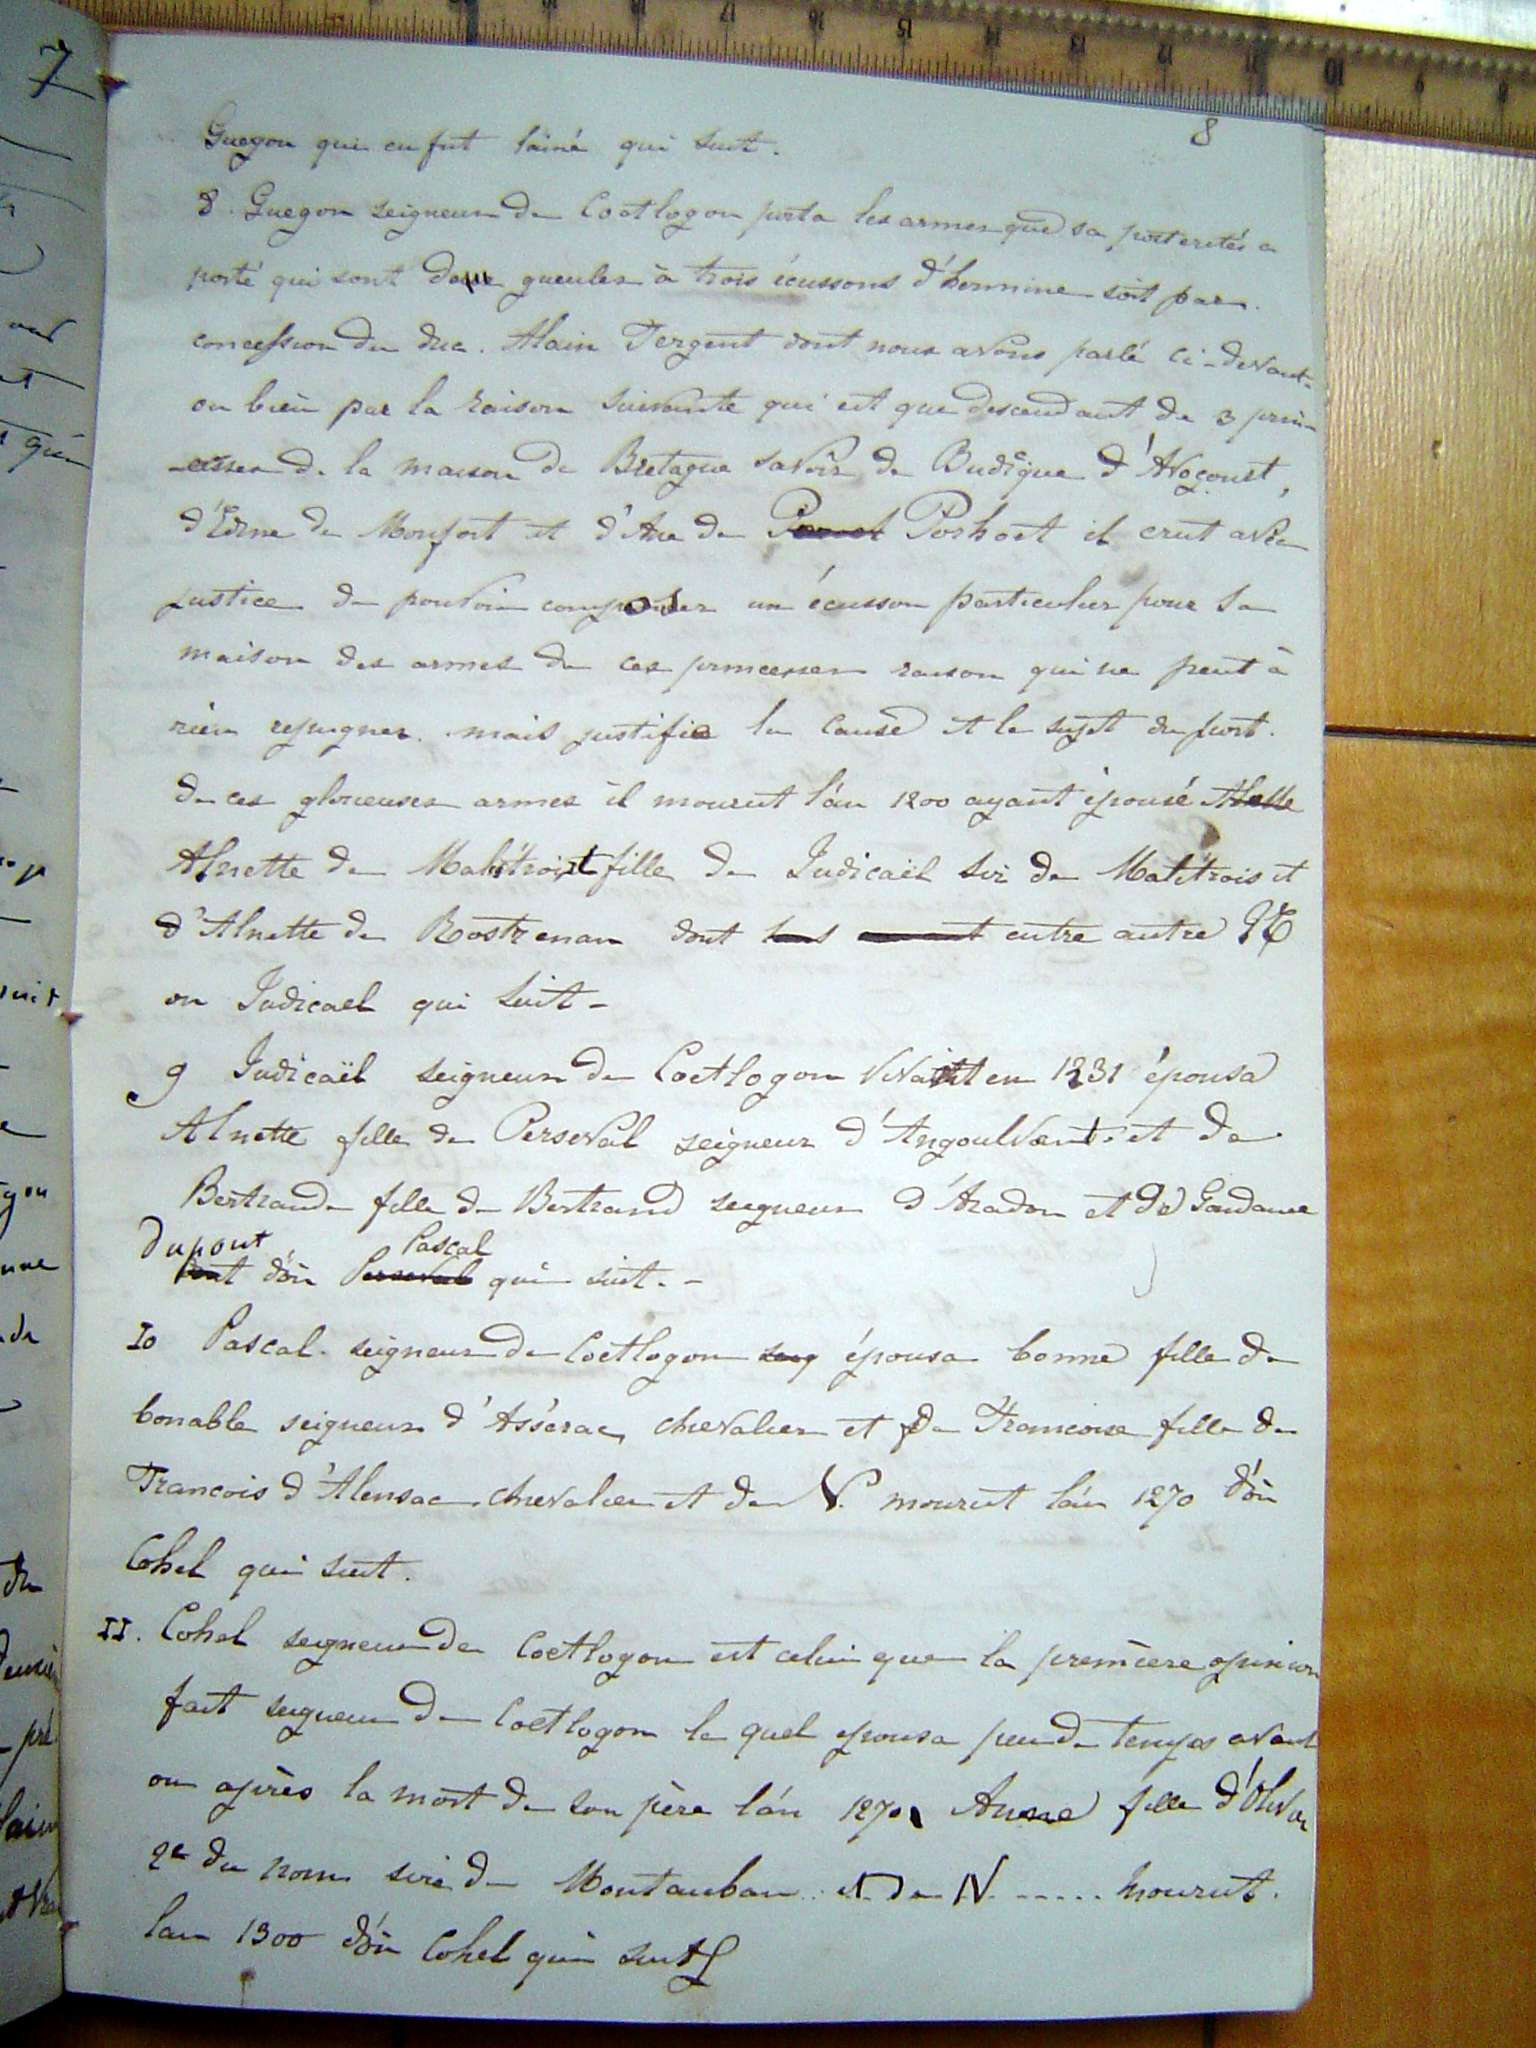 8
Guegon qui en fut lainé qui suit.
8. Guegon seigneur de Coetlogon porta les armes que sa posterités a
porté qui sont de gueules à trois écussons d'hermine soit par
concession du duc. Alain Fergent dont nous avons parlé ci-devant
ou bien par la raison suivante qui est que descendant de 3 prin-
-cesses de la maison de Bretagne savoir de Budique d'Avogourt,
d'Edme de Monfort et d'Ane de Porhoet il crut avec
justice de pouvoir composer un écusson particulier pour sa
maison des armes de ces princesses raison qui ne peut à
rien repugner. mais justifie la cause et le sujet du port.
de ces glorieuses armes il mourut l'an 1200 ayant épousé
Alnette de Malétroit fille de Judicaël sir de Malétrois et
d'Alnette de Rostrenan dont entre autre
ou Judicael qui suit-
9 Judicaël seigneur de Coetlogon vivait en 1231 épousa
Alnette fille de Perseval seigneur d'Angoulvent et de
Bertrande fille de Bertrand seigneur d'Aradon et de
dupont Pascal
d'où Perseval qui suit.-
10 Pascal. seigneur de Coetlogon seig épousa bonne fille de
bonable seigneur d'Asserac, chevalier et de Francoise fille de
Francois d'Alensac chevalier et de N. mourut l'an 1270 d'où
Cohel qui suit.
11. Cohel seigneur de Coetlogon est celui que la première opinion
fait seigneur de Coetlogon le quel epousa peu de temps avant
ou après la mort de son père l'an 1270 Anne fille d'Oliver
2e du nom sire de Montauban et de N ..... mourut.
lan 1300 d'où Cohel qui suit